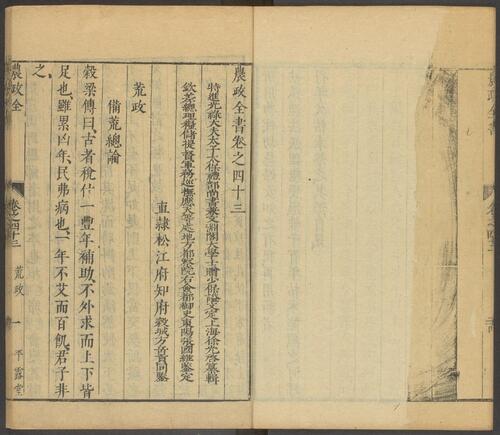 農政全書卷之四十三
特進光祿大夫太子太保禮部尚書兼文淵閣大學士贈少保諡文定上海徐光啓纂輯
欽差總理糧儲提督軍務巡撫應天等處地方都察院右僉都御史東陽張國維鑒定
直隸松江府知府穀城方岳貢同鑒
荒政
備荒總論
穀梁傳曰古者稅什一豐年補助不外求而上下皆
足也雖累凶年民弗病也一年不艾而百飢君子非
之
農政全
卷之四十三 荒政 一 平露堂